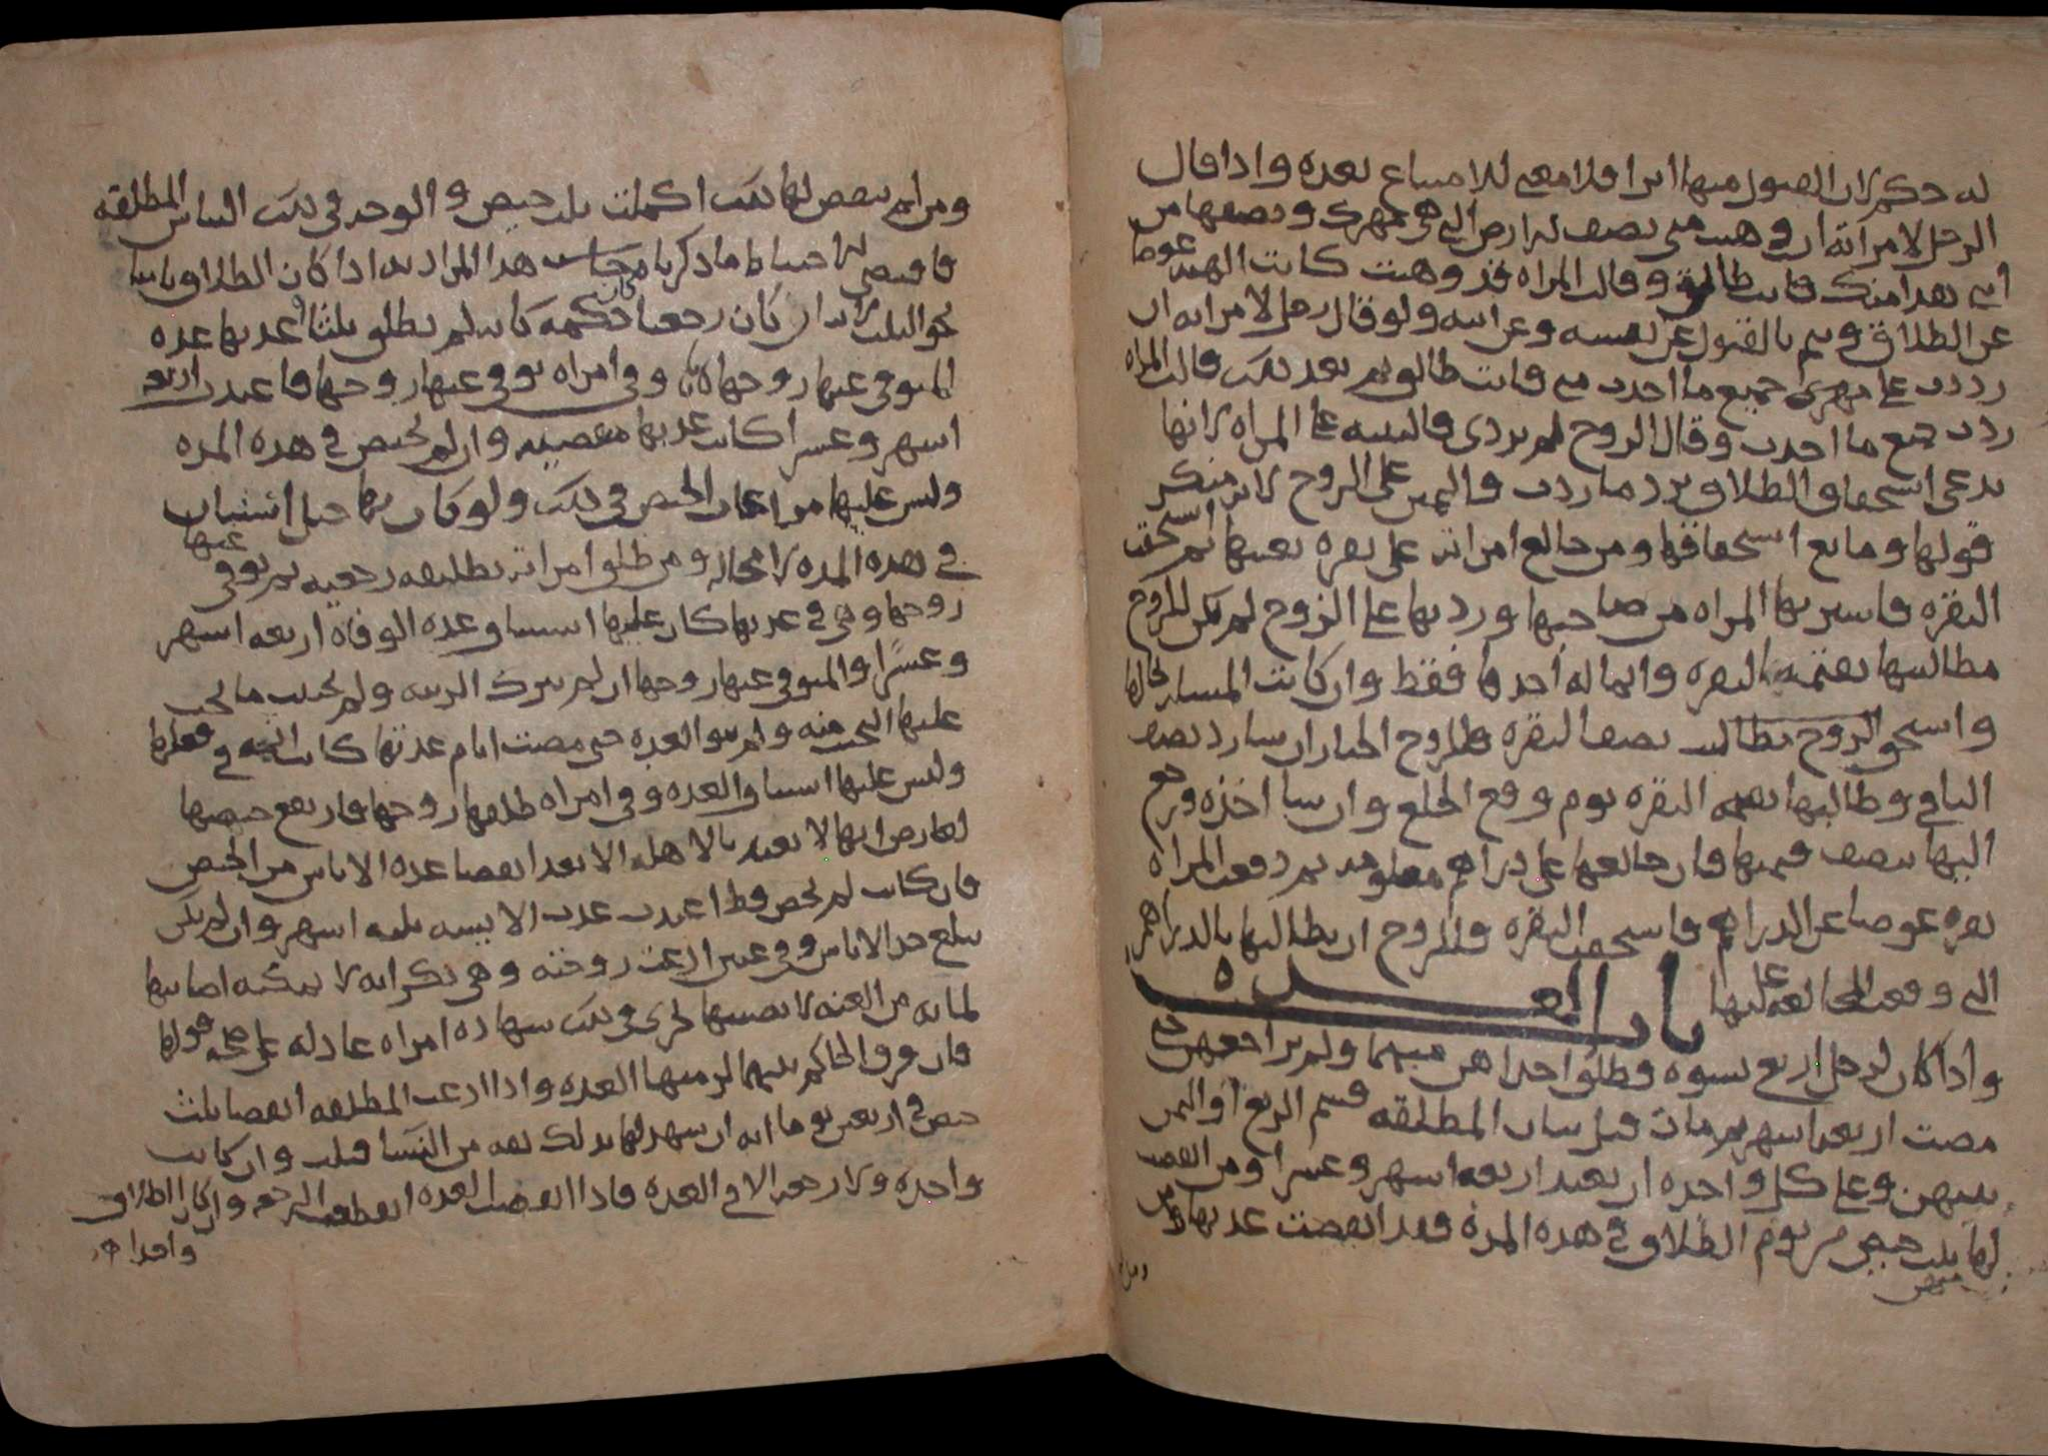 له حكم لان القبول منها ابرا فلا معنى للامتناع بعده واذا قال
الرجل لامراته ان وهبت مني نصف الارض التي هي مهرك ونصفها من
ابني هذا منك فانت طالق وقالت المراه قد وهبت كانت الهبه عوضا
عن الطلاق ويتم بالقبول عن نفسه وعن ابنه ولو قال رجل لامراته ان
رددت علي مهرى جميع ما اخذت مني فانت طالق ثم بعد ذلك قالت المراه
رددت جميع ما اخذت وقال الزوج لم تردي فالبينه على المراه لانها
تدعي استحقاق الطلاق برد ما ردت واليمين على الزوج لانه منكر
قولها ومانع استحقاقها ومن خالع امراته على بقره بعينها ثم استحقت
البقره فاشترتها المراه من صاحبها وردتها على الزوج لم يكن للزوج
مطالبتها بقيمه البقره وانما له اخذها فقط وان كانت المساله بحالها
واستحق الزوج بطالب نصف البقره فللزوج الخيار ان شا رد نصف
الباقي وطالبها بقيمه البقره يوم وقع الخلع وان شا اخذه ورجع
اليها بنصف قيمتها فان خالعها على دراهم معلومه ثم دفعت المراه
بقره عوضا عن الدراهم فاستحقت البقره فللزوج ان يطالبها بالدراهم
التي وقعت المخالعه عليها باب العده
واذا كان لرجل اربع نسوه فطلق احداهن مبهما ولم يراجعهن حتى
مضت اربعه اشهر ثم مات قبل بيان المطلقه قسم الربع او الثمن
بينهن وعلى كل واحده ان تعتد اربعه اشهر وعشرا ومن انقضت
لها ثلث حيض من يوم الطلاق في هذه المده فقد انقضت عدتها
منهن
ومن لم ينقض لها ذلك اكملت ثلث حيض والوجه في ذلك التباس المطلقه
فاقتضى الاحتياط ما ذكرنا هذا المراد به اذا كان الطلاق باينا
نحو الثلث لانه ان كان رجعيا حكمه كانه لم يطلق بلثا وعدتها عده
المتوفى عنها زوجها وفي امراه توفي عنها زوجها فاعتدت اربعه
اشهر وعشرا كانت عدتها منقضيه وان لم تحيض في هذه المده
وليس عليها مراعاه الحيض في ذلك ولو كان بها حبل استبان
في هذه المده لا محاله ومن طلق امراته تطليقه رجعيه ثم توفي عنها
زوجها وهي في عدتها كان عليها استيناف عده الوفاه اربعه اشهر
وعشرًا والمتوفى عنها زوجها ان لم تترك الزينه ولم تجتنب ما يجب
عليها التجنب منه ولم تنو العده حتى مضت ايام عدتها كانت اثمه في فعلها
وليس عليها استيناف العده وفي امراه طلقها زوجها فارتفع حيضها
لعارض انها لا تعتد بالاهله الا بعد انقضا عده الاياس من الحيض
فان كانت لم تحض قط اعتدت عده الايسه ثلثه اشهر وان لم تكن
تبلغ حد الاياس وفي عنين ادعت زوجته وهي بكر انه لا يمكنه اصابتها
لما به من العنه لا نصيبها يجزى في ذلك شهاده امراه عادله على صحه قولها
فان فرق الحاكم بينهما لزمتها العده واذا ادعت المطلقه انقضا ثلث
حيض في اربعين يوما انه ان شهد لها بذلك ثقه من النسا قبلت وان كانت
واحده ولا رجعه الا في العده فاذا انقضت العده انقطعت الرجعه وان كان الطلاق
واحدا